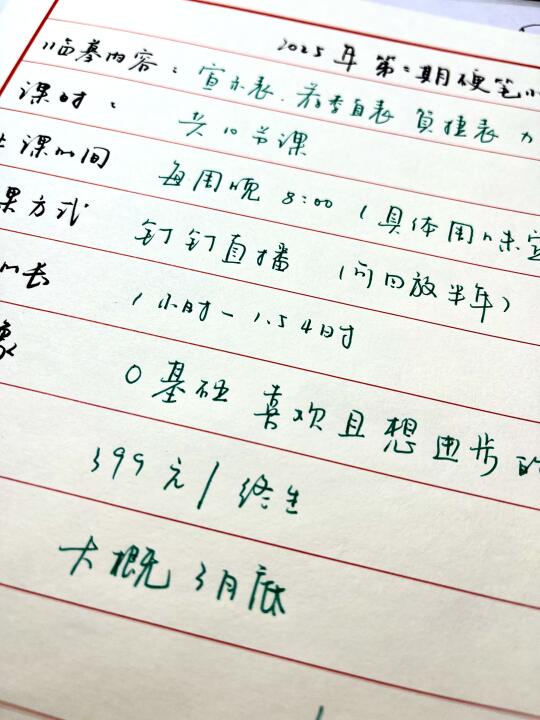 2025年第二期硬笔小
临摹内容：宣示表、荐季直表 负捶表 力
课时：共10节课
上课时间 每周晚 8:00（具体周几未定
课方式 钉钉直播（可回放半年）
时长 1小时-1.5小时
象 0基础 喜欢且想进步的
399元/终生
大概3月底